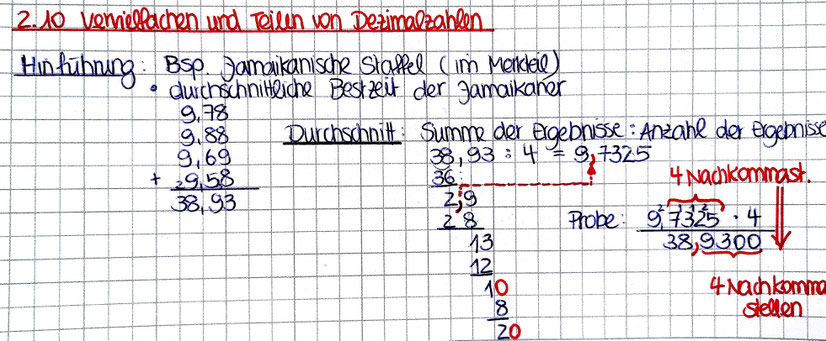 2.10 Vervielfachen und Teilen von Dezimalzahlen
Hinführung: Bsp. Jamaikanische Staffel (im Merkteil)
• durchschnittliche Bestzeit der Jamaikaner
9,78
9,88
9,69
+ 29,58
38,93
Durchschnitt: Summe der Ergebnisse : Anzahl der Ergebnisse
38,93 : 4 = 9,7325
36
2,9
28
13
12
10
8
20
4 Nachkommast.
Probe: 9,7325 · 4
38,9300
4 Nachkomma
stellen